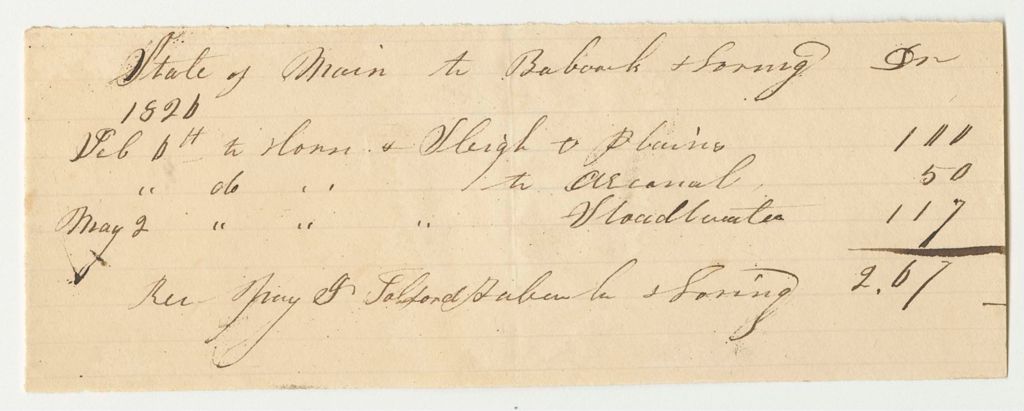 State of Main to Babcock & Loring Dr
1826
Feb 6th to Horse & Sleigh to Plains 1 00
" do " to Arsenal 50
May 2 " " " 1 17
2.67
Rec Pay J Tolford Babcock & Loring